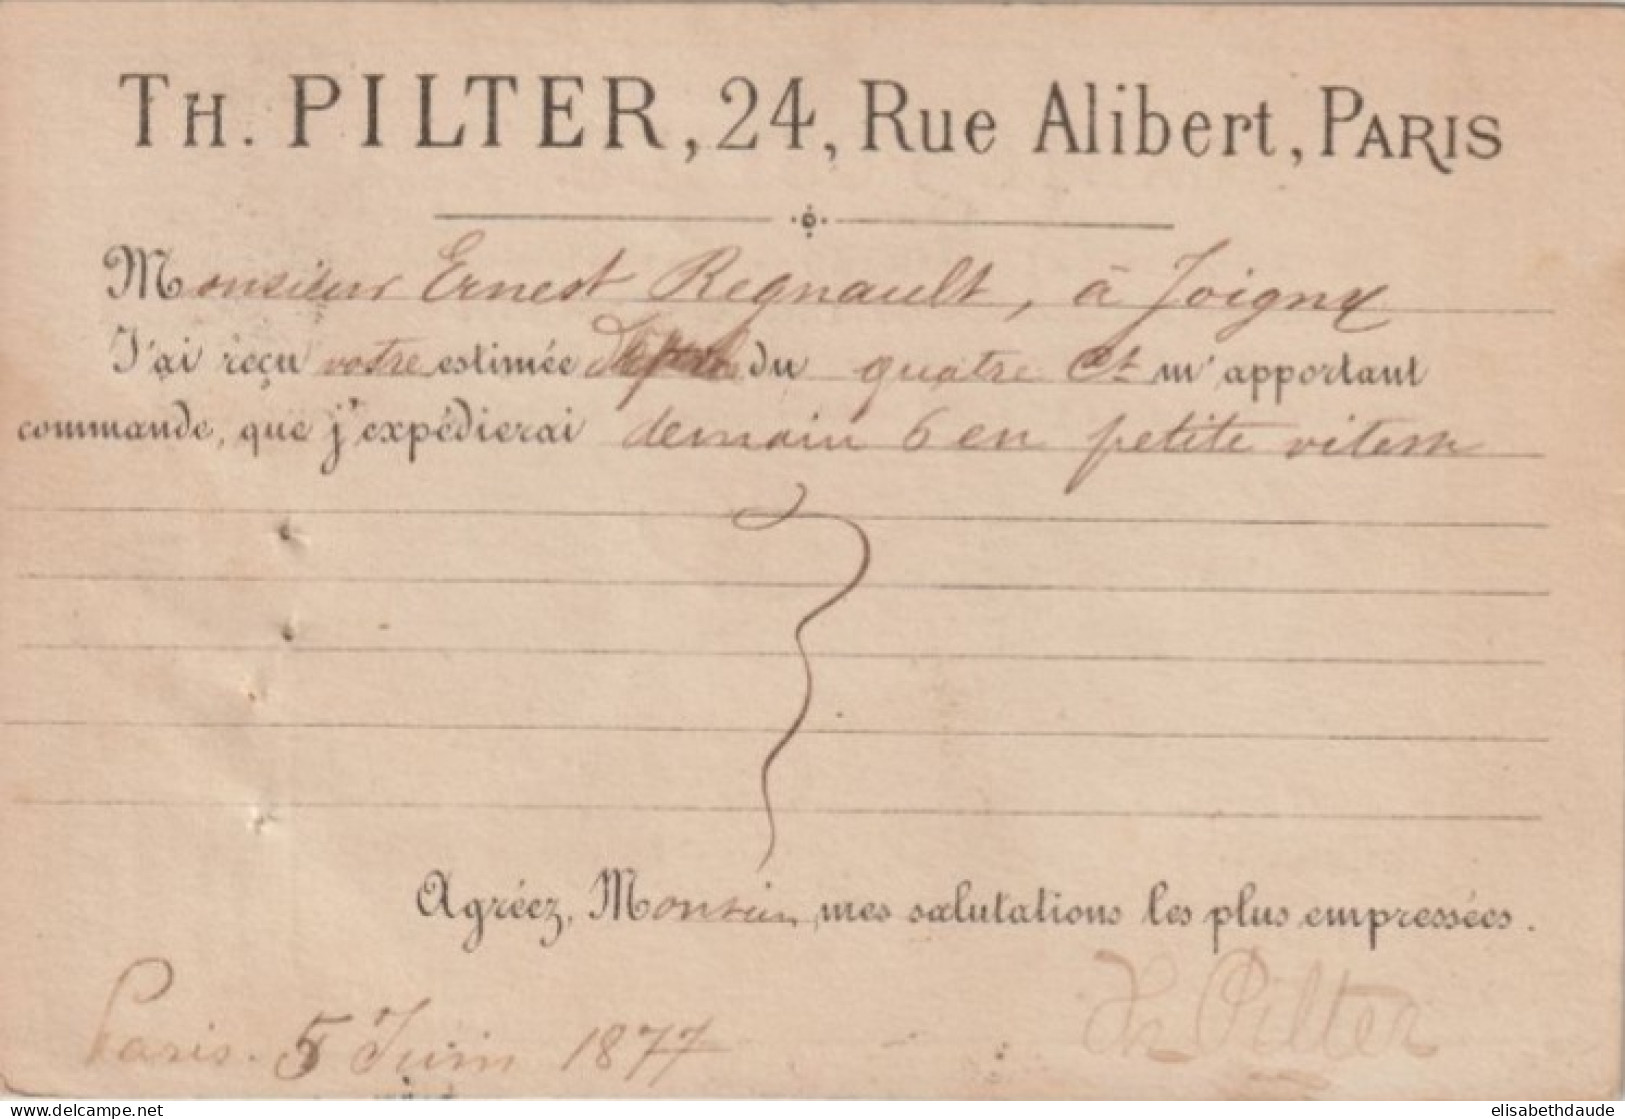 TH. PILTER, 24, Rue Alibert, PARIS
Monsieur Ernest Regnault, à Joigny
J'ai reçu votre estimée du quatre Ct m'apportant
commande, que j'expédierai demain 6 en petite vitesse
Agréez, Monsieur, mes salutations les plus empressées.
Paris. 5 Juin 1877
Th Pilter
www.delcampe.net
elisabethdaude